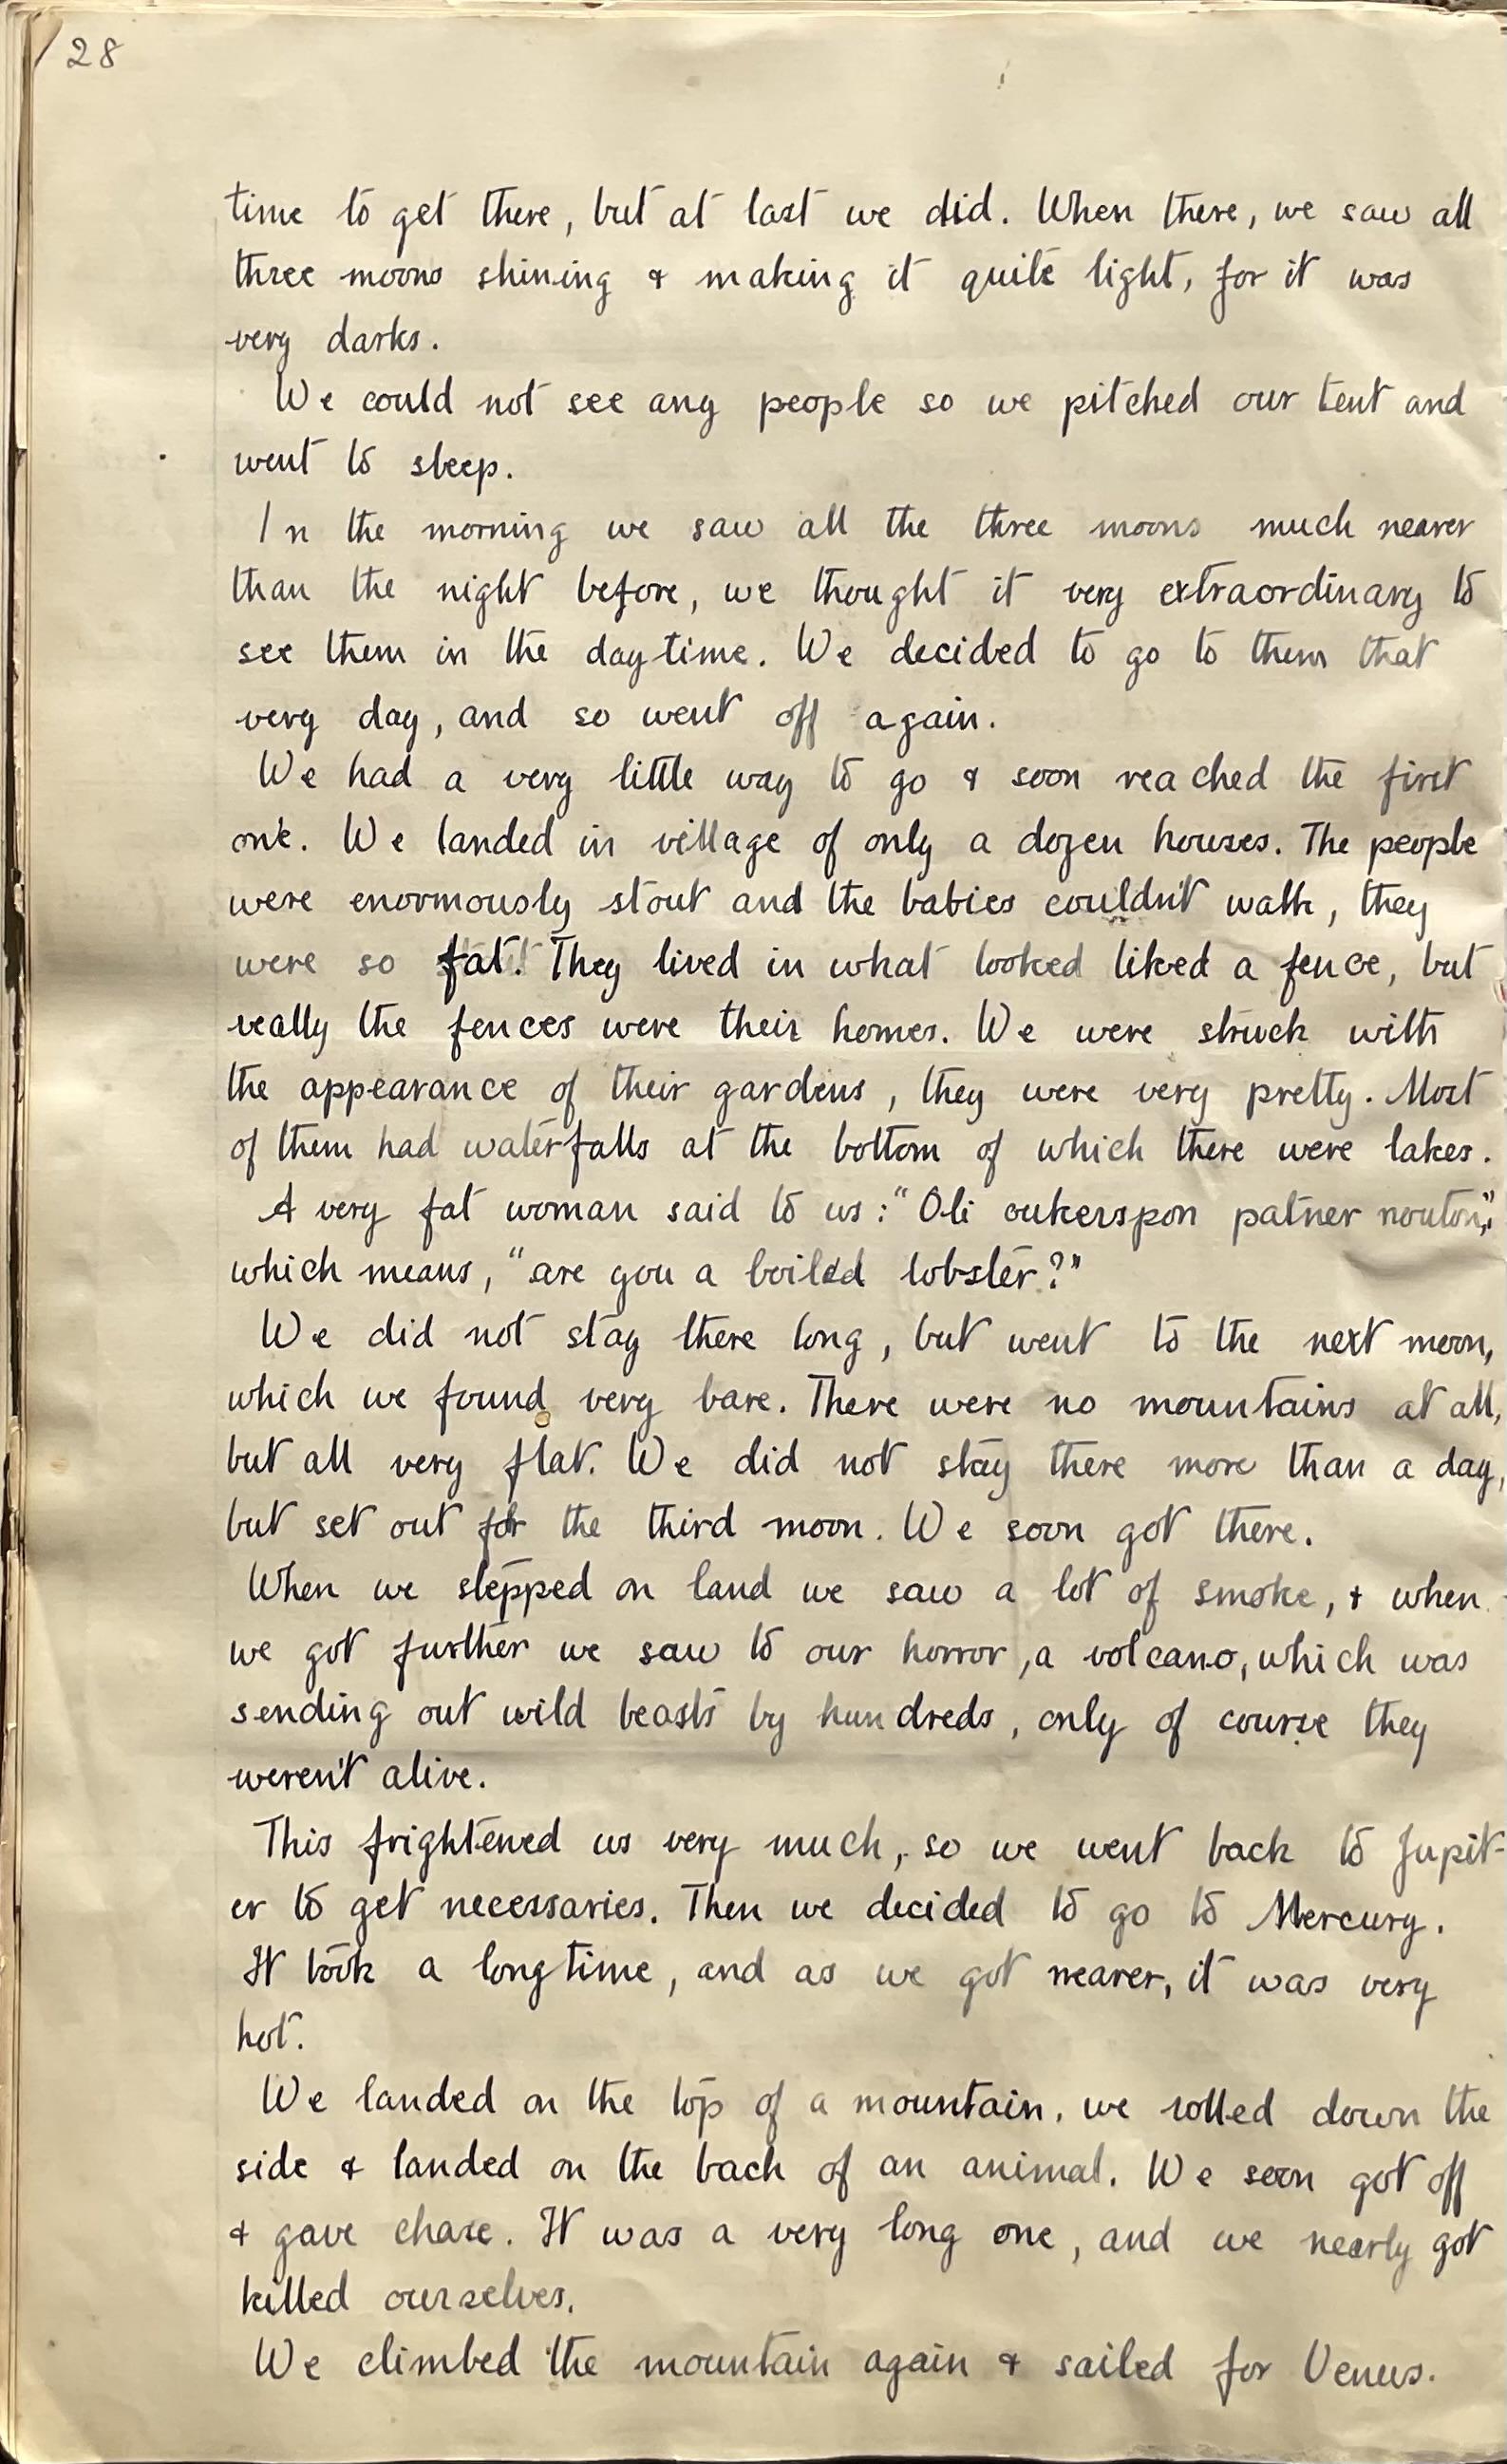 28
time to get there, but at last we did. When there, we saw all
three moons shining & making it quite light, for it was
very dark.
We could not see any people so we pitched our tent and
went to sleep.
In the morning we saw all the three moons much nearer
than the night before, we thought it very extraordinary to
see them in the daytime. We decided to go to them that
very day, and so went off again.
We had a very little way to go & soon reached the first
one. We landed in village of only a dozen houses. The people
were enormously stout and the babies couldn't walk, they
were so fat! They lived in what looked liked a fence, but
really the fences were their homes. We were struck with
the appearance of their gardens, they were very pretty. Most
of them had waterfalls at the bottom of which there were lakes.
A very fat woman said to us: "Oli oukerspon patner nouton,"
which means, "are you a boiled lobster?"
We did not stay there long, but went to the next moon,
which we found very bare. There were no mountains at all,
but all very flat. We did not stay there more than a day,
but set out for the third moon. We soon got there.
When we stepped on land we saw a lot of smoke, & when
we got further we saw to our horror, a volcano, which was
sending out wild beasts by hundreds, only of course they
weren't alive.
This frightened us very much, so we went back to Jupit-
er to get necessaries. Then we decided to go to Mercury.
It took a long time, and as we got nearer, it was very
hot.
We landed on the top of a mountain, we rolled down the
side & landed on the back of an animal. We soon got off
& gave chase. It was a very long one, and we nearly got
killed ourselves.
We climbed the mountain again & sailed for Venus.